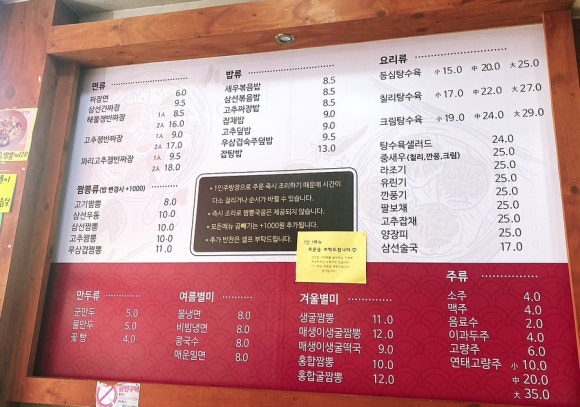 면류
짜장면 6.0
삼선간짜장 9.5
해물쟁반짜장 1人 8.5
2人 16.0
고추쟁반짜장 1人 9.0
2人 17.0
꽈리고추쟁반짜장 1人 9.5
2人 18.0
짬뽕류(밥 변경시 +1000)
고기짬뽕 8.0
삼선우동 10.0
삼선짬뽕 10.0
고추짬뽕 10.0
우삼겹짬뽕 11.0
밥류
새우볶음밥 8.5
삼선볶음밥 8.5
고추짜장밥 8.5
잡채밥 9.0
고추덮밥 9.0
우삼겹숙주덮밥 9.5
잡탕밥 13.0
• 1인주방장으로 주문 즉시 조리하기 때문에 시간이
다소 걸리거나 순서가 바뀔 수 있습니다.
• 즉시 조리로 짬뽕국물은 제공되지 않습니다.
• 모든메뉴 곱빼기는 +1000원 추가됩니다.
• 추가 반찬은 셀프 부탁드립니다.
요리류
등심탕수육 小 15.0 中 20.0 大 25.0
칠리탕수육 小 17.0 中 22.0 大 27.0
크림탕수육 小 19.0 中 24.0 大 29.0
탕수육샐러드 24.0
중새우(칠리,깐풍,크림) 25.0
라조기 25.0
유린기 25.0
깐풍기 25.0
팔보채 25.0
고추잡채 25.0
양장피 25.0
삼선술국 17.0
만두류
군만두 5.0
물만두 5.0
꽃빵 4.0
여름별미
물냉면 8.0
비빔냉면 8.0
콩국수 8.0
매운밀면 8.0
겨울별미
생굴짬뽕 11.0
매생이생굴짬뽕 12.0
매생이생굴떡국 9.0
홍합짬뽕 10.0
홍합굴짬뽕 12.0
주류
소주 4.0
맥주 4.0
음료수 2.0
이과두주 4.0
고량주 6.0
연태고량주 小 10.0
中 20.0
大 35.0